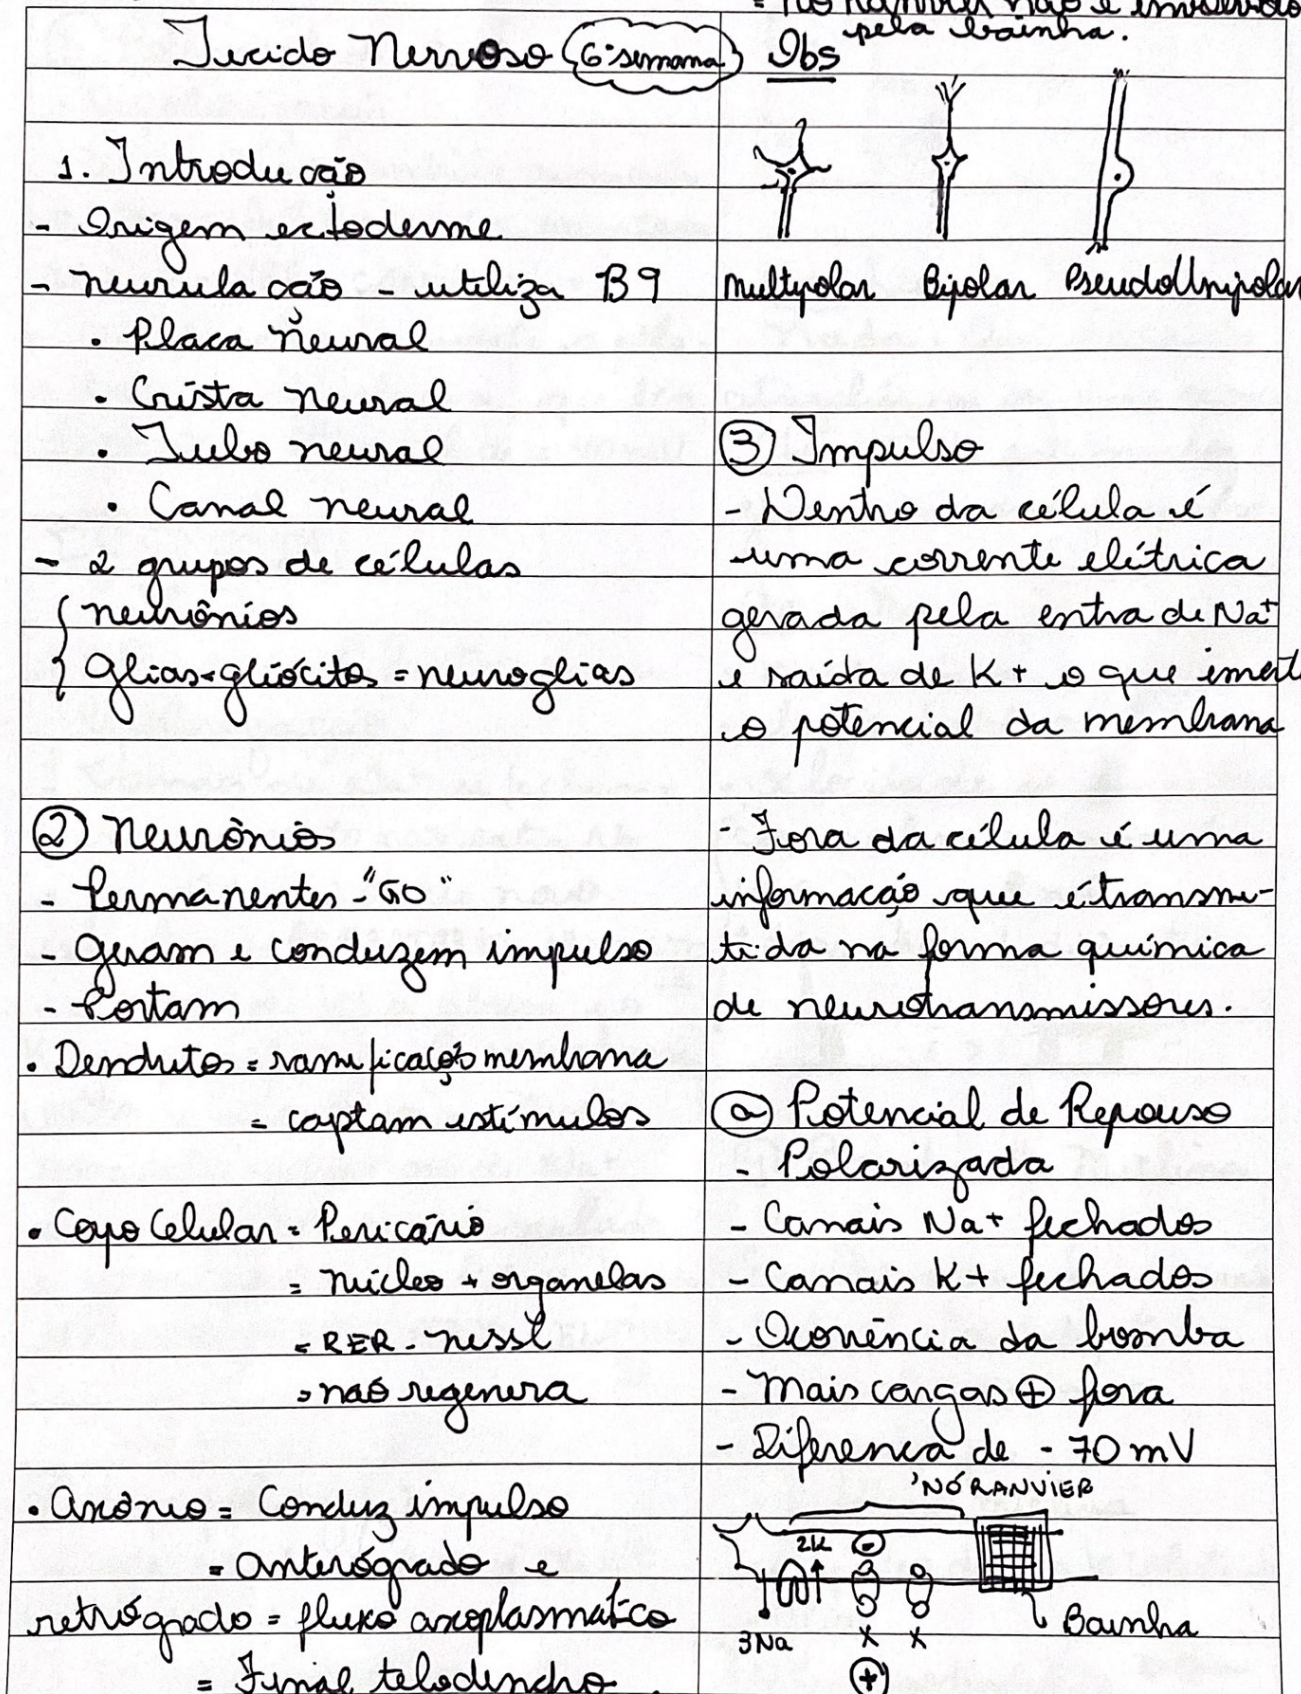 Tecido Nervoso (6ª semana)
1. Introdução
- Origem ectoderme
- Neurulação - utiliza B9
• Placa Neural
• Crista Neural
• Tubo neural
• Canal neural
- 2 grupos de células
{ neurônios
{ Glias = gliócitos = neuroglias
② Neurônios
- Permanentes - "G0"
- Geram e conduzem impulso
- Portam
• Dendritos = ramificação membrana
= captam estímulos
• Corpo Celular = Pericário
= Núcleo + organelas
= RER - Nissl
= não regenera
• Axônio = Conduz impulso
= anterógrado e
retrógrado = fluxo axoplasmático
= Final telodendro
= nó ranvier não é envolvido
pela bainha.
Obs
Multipolar Bipolar PseudoUnipolar
③ Impulso
- Dentro da célula é
uma corrente elétrica
gerada pela entra de Na+
e saída de K+ o que inverte
o potencial da membrana
- Fora da célula é uma
informação que é transmi-
tida na forma química
de neurotransmissores.
ⓐ Potencial de Repouso
- Polarizada
- Canais Na+ fechados
- Canais K+ fechados
- Ocorrência da bomba
- Mais cargas ⊕ fora
- Diferença de - 70 mV
NÓ RANVIER
2K ⊖
Bainha
3Na X X
⊕